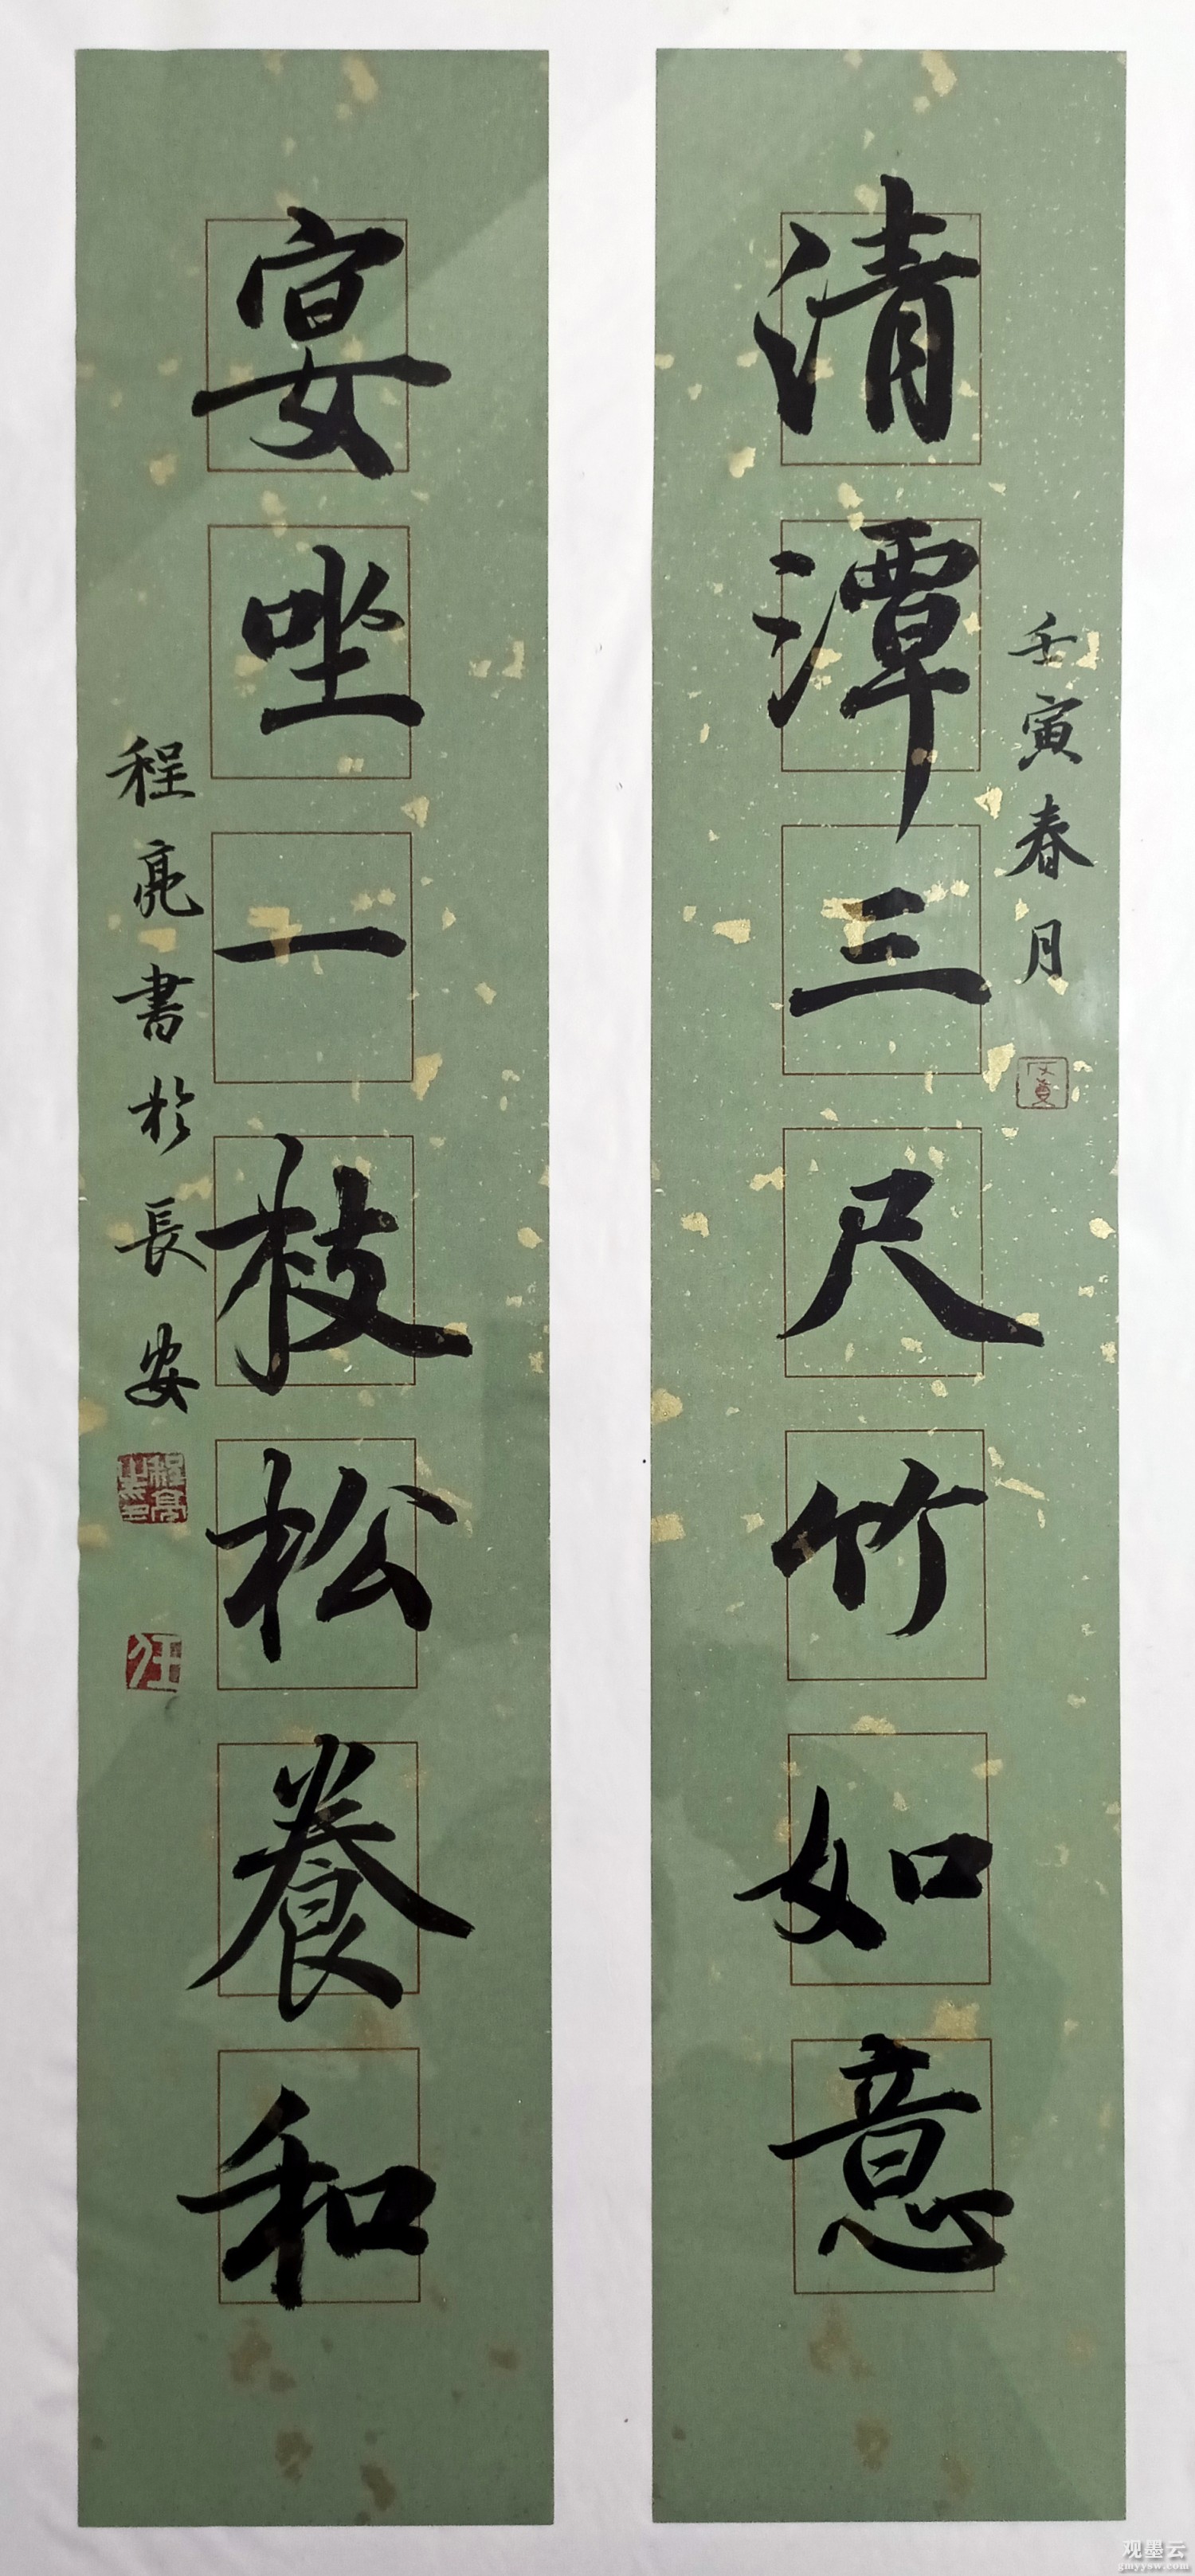 清潭三尺竹如意
壬寅春月
宴坐一枝松養和
程亮書於長安
程亮之印
观墨云
gmyysw.com